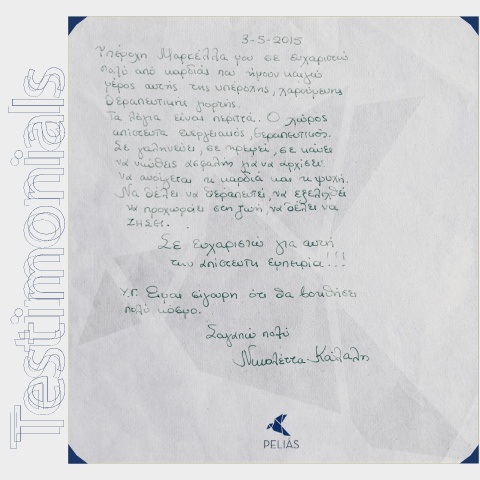 Testimonials
3-5-2015
Υπέροχη Μαρκέλλα μου σε ευχαριστώ
πολύ από καρδιάς που ήμουν και εγώ
μέρος αυτής της υπέροχης, χαρούμενης
θεραπευτικής γιορτής.
Τα λόγια είναι περιττά. Ο χώρος
απίστευτα ενεργειακός, θεραπευτικός.
Σε γαληνεύει, σε ηρεμεί, σε κάνει
να νιώθεις ασφαλής για να αρχίσει
να ανοίγεται η καρδιά και η ψυχή.
Να θέλει να θεραπευτεί, να εξελιχθεί
να προχωράει στη ζωή, να θέλει να
ΖΗΣΕΙ.
Σε ευχαριστώ για αυτή
την απίστευτη εμπειρία!!!
Υ.Γ. Είμαι σίγουρη ότι θα βοηθήσει
πολύ κόσμο.
Σ'αγαπώ πολύ
Νικολέττα
PELIÁS